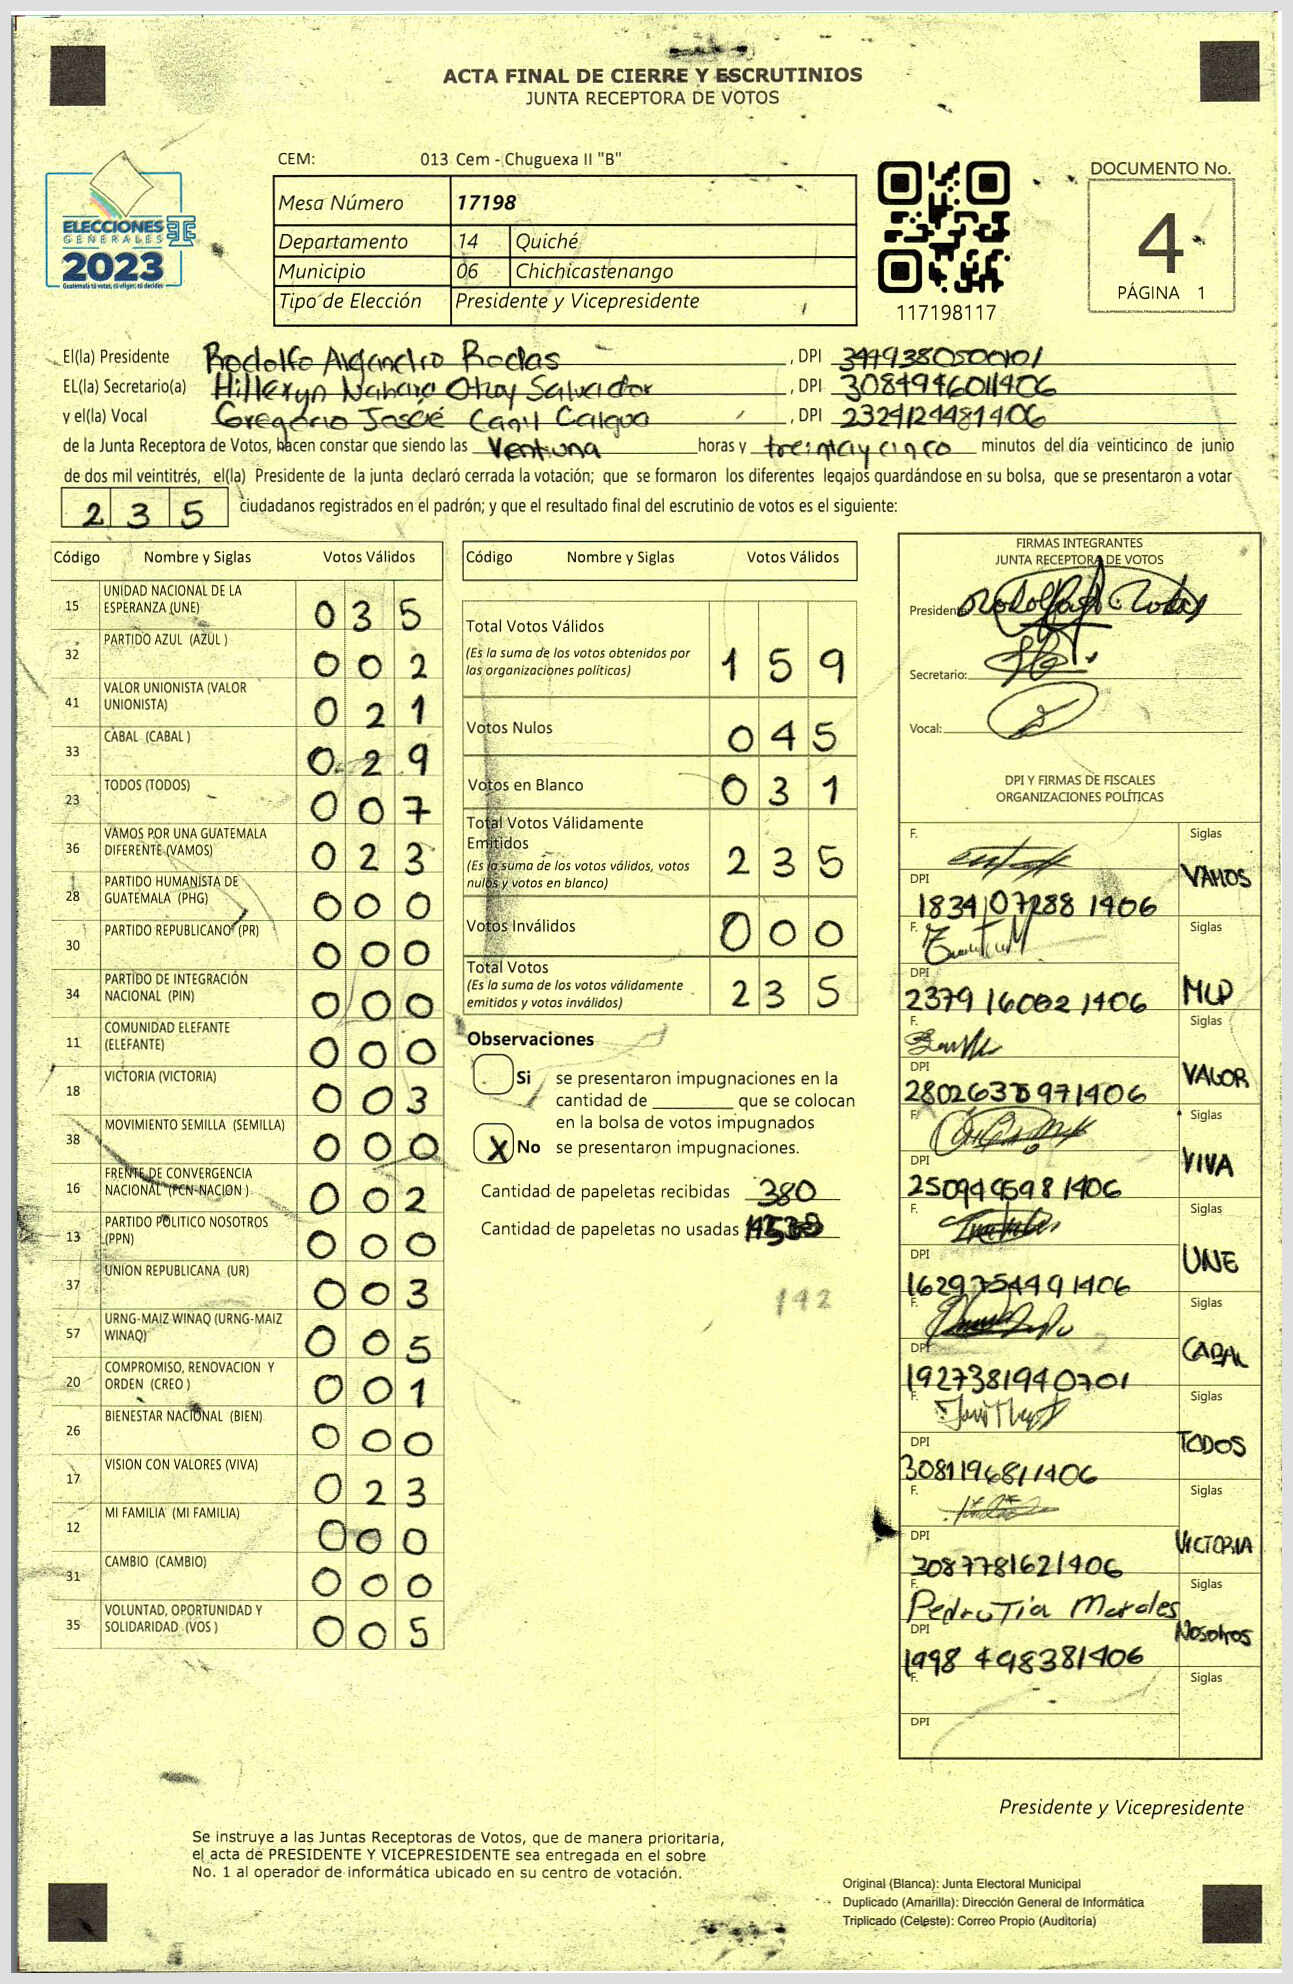 ACTA FINAL DE CIERRE Y ESCRUTINIOS
JUNTA RECEPTORA DE VOTOS
CEM: 013 Cem - Chuguexa II "B"
DOCUMENTO No.
4
PÁGINA 1
ELECCIONES
GENERALES
2023
Guatemala tú votas, tú eliges, tú decides
Mesa Número 17198
Departamento 14 Quiché
Municipio 06 Chichicastenango
Tipo de Elección Presidente y Vicepresidente
117198117
El(la) Presidente Rodolfo Alejandro Rodas, DPI 3449380500101
EL(la) Secretario(a) Salvador, DPI 3084946011406
y el(la) Vocal Gregorio Canil Calgua, DPI 2324124481406
de la Junta Receptora de Votos, hacen constar que siendo las Ventiuna horas y treintaycinco minutos del día veinticinco de junio
de dos mil veintitrés, el(la) Presidente de la junta declaró cerrada la votación; que se formaron los diferentes legajos guardándose en su bolsa, que se presentaron a votar
235 ciudadanos registrados en el padrón; y que el resultado final del escrutinio de votos es el siguiente:
Código Nombre y Siglas Votos Válidos
15 UNIDAD NACIONAL DE LA
ESPERANZA (UNE) 035
32 PARTIDO AZUL (AZUL ) 002
41 VALOR UNIONISTA (VALOR
UNIONISTA) 021
33 CABAL (CABAL ) 029
23 TODOS (TODOS) 007
36 VAMOS POR UNA GUATEMALA
DIFERENTE (VAMOS) 023
28 PARTIDO HUMANISTA DE
GUATEMALA (PHG) 000
30 PARTIDO REPUBLICANO (PR) 000
34 PARTIDO DE INTEGRACIÓN
NACIONAL (PIN) 000
11 COMUNIDAD ELEFANTE
(ELEFANTE) 000
18 VICTORIA (VICTORIA) 003
38 MOVIMIENTO SEMILLA (SEMILLA) 000
16 FRENTE DE CONVERGENCIA
NACIONAL (FCN-NACION ) 002
13 PARTIDO POLITICO NOSOTROS
(PPN) 000
37 UNION REPUBLICANA (UR) 003
57 URNG-MAIZ WINAQ (URNG-MAIZ
WINAQ) 005
20 COMPROMISO, RENOVACION Y
ORDEN (CREO ) 001
26 BIENESTAR NACIONAL (BIEN) 000
17 VISION CON VALORES (VIVA) 023
12 MI FAMILIA (MI FAMILIA) 000
31 CAMBIO (CAMBIO) 000
35 VOLUNTAD, OPORTUNIDAD Y
SOLIDARIDAD (VOS ) 005
Código Nombre y Siglas Votos Válidos
Total Votos Válidos
(Es la suma de los votos obtenidos por
las organizaciones políticas) 159
Votos Nulos 045
Votos en Blanco 031
Total Votos Válidamente
Emitidos
(Es la suma de los votos válidos, votos
nulos y votos en blanco) 235
Votos Inválidos 000
Total Votos
(Es la suma de los votos válidamente
emitidos y votos inválidos) 235
Observaciones
Si se presentaron impugnaciones en la
cantidad de ________ que se colocan
en la bolsa de votos impugnados
X No se presentaron impugnaciones.
Cantidad de papeletas recibidas 380
Cantidad de papeletas no usadas
142
FIRMAS INTEGRANTES
JUNTA RECEPTORA DE VOTOS
Presidente:
Secretario:
Vocal:
DPI Y FIRMAS DE FISCALES
ORGANIZACIONES POLÍTICAS
F. Siglas
VAMOS
DPI
1834107288 1406
F. Siglas
DPI
2379 16002 1406 MLP
F. Siglas
DPI VALOR
F. Siglas
DPI VIVA
2509495981406
F. Siglas
DPI UNE
1629754491406
F. Siglas
DPI CABAL
1927381940701
F. Siglas
DPI TODOS
3081196811406
F. Siglas
DPI VICTORIA
3087781621406
F. Siglas
Pedro Tia Morales
DPI Nosotros
1998 498381406
F. Siglas
DPI
Presidente y Vicepresidente
Se instruye a las Juntas Receptoras de Votos, que de manera prioritaria,
el acta de PRESIDENTE Y VICEPRESIDENTE sea entregada en el sobre
No. 1 al operador de informática ubicado en su centro de votación.
Original (Blanca): Junta Electoral Municipal
Duplicado (Amarilla): Dirección General de Informática
Triplicado (Celeste): Correo Propio (Auditoría)